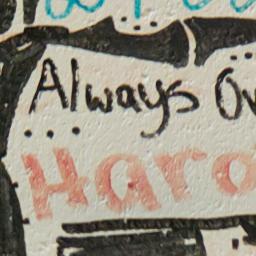 Always Ov
Hard